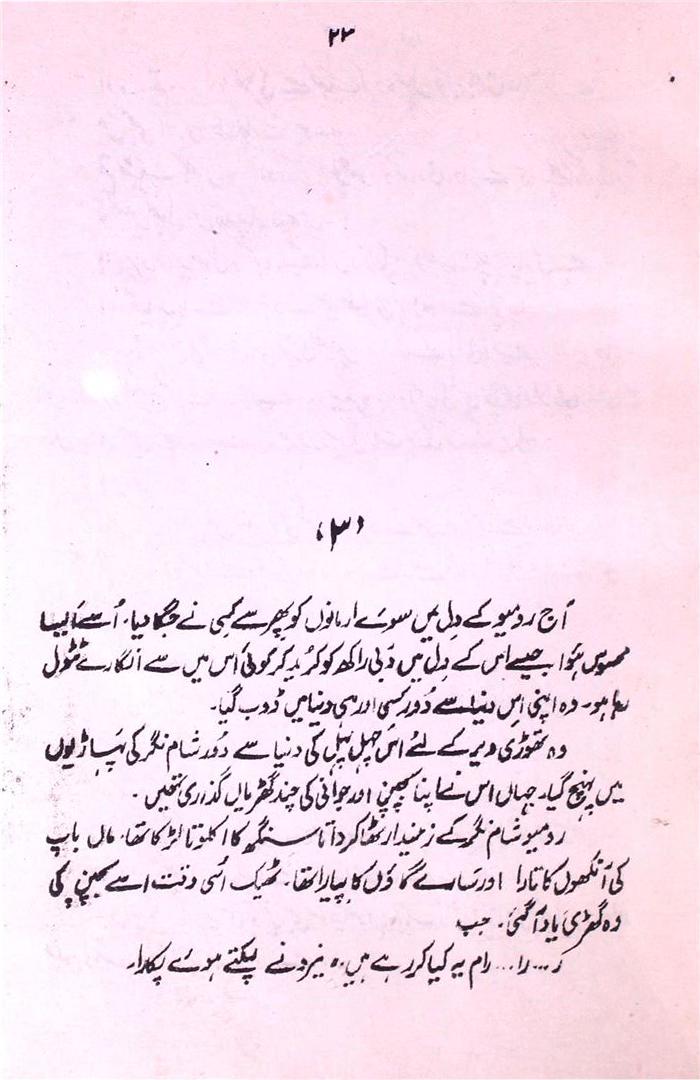 ۲۳
(۳)
آج رومیو کے دِل میں سوئے ارمانوں کو پھر سے کسی نے جگا دیا۔ اُسے ایسا
محسوس ہُوا جیسے اس کے دِل میں دَبی راکھ کو کُرید کر کوئی اُس میں سے انگارے ٹٹول
رہا ہو۔ وہ اپنی اِس دنیا سے دُور کسی اور ہی دنیا میں ڈوب گیا۔
وہ تھوڑی دیر کے لئے اس چہل پہل کی دنیا سے دُور شام نگر کی پہاڑیوں
میں پہنچ گیا۔ جہاں اس نے اپنا بچپن اور جوانی کی چند گھڑیاں گذاری تھیں۔
رومیو شام نگر کے زمیندار ٹھاکر داتا سنگھ کا اکلوتا لڑکا تھا۔ ماں باپ
کی آنکھوں کا تارا اور سارے گاؤں کا پیارا تھا۔ ٹھیک اُسی وقت اسے بچپن کی
وہ گھڑی یاد آ گئی۔ جب
ر... را... رام یہ کیا کر رہے ہیں۔ نیرو نے لپکتے ہوئے پکارا۔